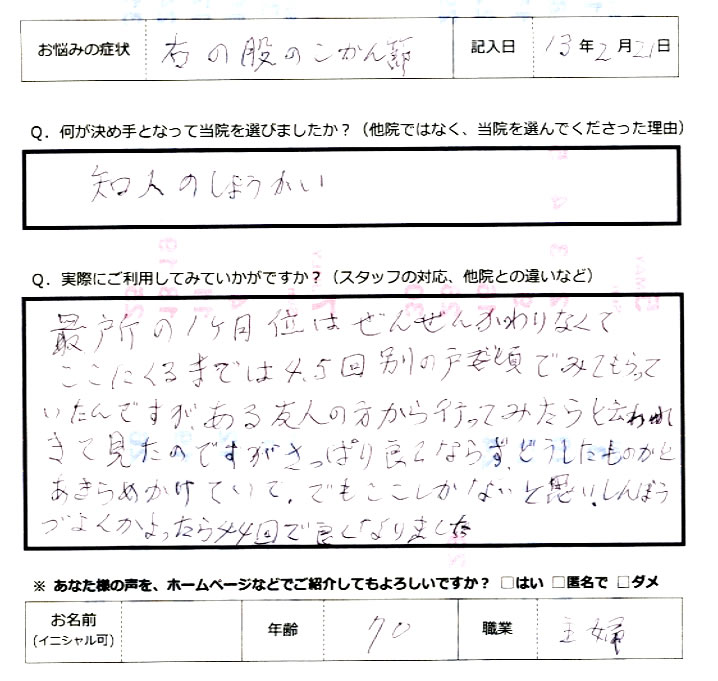 お悩みの症状 右の股のこかん節 記入日 13年2月21日
Q. 何が決め手となって当院を選びましたか？（他院ではなく、当院を選んでくださった理由）
知人のしょうかい
Q. 実際にご利用してみていかがですか？（スタッフの対応、他院との違いなど）
最所の1ヶ月位はぜんぜんかわりなくて
ここにくるまでは4.5回別の でみてもらって
いたんですが、ある友人の方から行ってみたらと云われ
きて見たのですがさっぱり良くならず、どうしたものかと
あきらめかけていて、でもここしかないと思い、しんぼう
づよくかよったら44回で良くなりました
※ あなた様の声を、ホームページなどでご紹介してもよろしいですか？ □はい □匿名で □ダメ
お名前 年齢 70 職業 主婦
(イニシャル可)